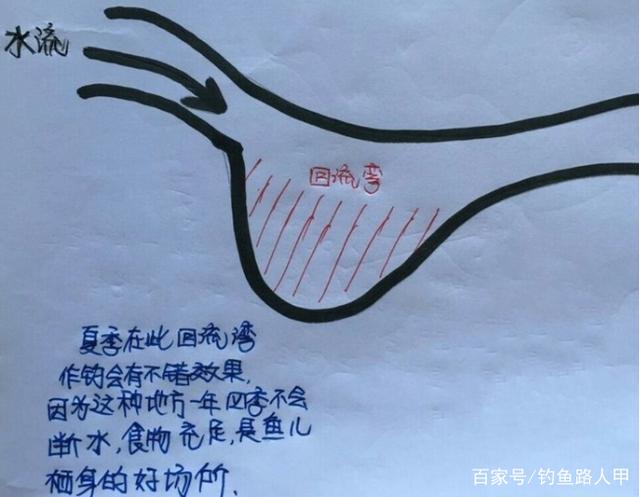 水流
回流弯
夏季在此回流湾
作钓会有不错效果,
因为这种地方一年四季不会
断水,食物充足,是鱼儿
栖身的好场所.
百家号/钓鱼路人甲